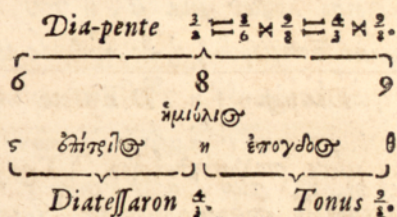 Dia-pente 3/2 = 8/6 × 9/8 = 4/3 × 9/8.
6 8 9
ἡμιόλιος
ς ἐπίτριτος η ἐπόγδοος θ
Diateſſaron 4/3. Tonus 9/8.